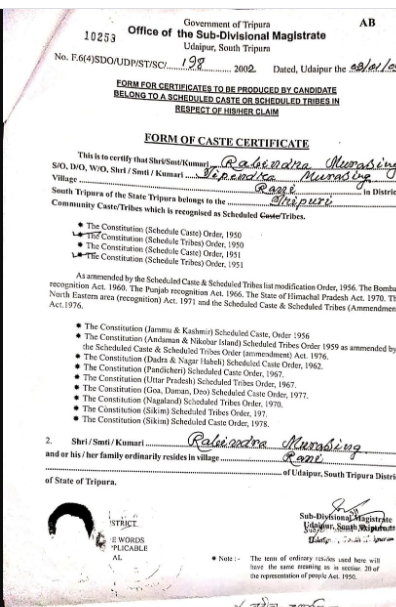 Government of Tripura
AB
10253
Office of the Sub-Divisional Magistrate
Udaipur, South Tripura
No. F.6(4)SDO/UDP/ST/SC/ 198 2002 Dated, Udaipur the
FORM FOR CERTIFICATES TO BE PRODUCED BY CANDIDATE
BELONG TO A SCHEDULED CASTE OR SCHEDULED TRIBES IN
RESPECT OF HIS/HER CLAIM
FORM OF CASTE CERTIFICATE
This is to certify that Shri/Smt/Kumari Rabindra Murasing
S/O, D/O, W/O, Shri / Smti / Kumari Murasing
Village Rani in Distric
South Tripura of the State Tripura belongs to the Tripuri
Community Caste/Tribes which is recognised as Scheduled Caste/Tribes.
* The Constitution (Schedule Caste) Order, 1950
* The Constitution (Scheduled Tribes) Order, 1950
* The Constitution (Scheduled Caste) Order, 1951
* The Constitution (Scheduled Tribes) Order, 1951
As ammended by the Scheduled Caste & Scheduled Tribes list modification Order, 1956. The Bomba
recognition Act. 1960. The Punjab recognition Act. 1966. The State of Himachal Pradesh Act. 1970. Th
North Eastern area (recognition) Act. 1971 and the Scheduled Caste & Scheduled Tribes (Ammendmen
Act.1976.
* The Constitution (Jammu & Kashmir) Scheduled Caste, Order 1956
* The Constitution (Andaman & Nikobar Island) Scheduled Tribes Order 1959 as ammended by
the Scheduled Caste & Scheduled Tribes Order (ammendment) Act. 1976.
* The Constitution (Dadra & Nagar Habeli) Scheduled Caste Order, 1962.
* The Constitution (Pandicheri) Scheduled Caste Order, 1967.
* The Constitution (Uttar Pradesh) Scheduled Tribes Order, 1967.
* The Constitution (Goa, Daman, Deo) Scheduled Caste Order, 1977.
* The Constitution (Nagaland) Scheduled Tribes Order, 1970.
* The Constitution (Sikim) Scheduled Tribes Order, 197.
* The Constitution (Sikim) Scheduled Caste Order, 1978.
2. Shri / Smti / Kumari Rabindra Murasing
and or his / her family ordinarily resides in village Rani
of Udaipur, South Tripura Distri
of State of Tripura.
STRICT
E WORDS
PLICABLE
AL
Sub-Divisional Magistrate
Udaipur, South Tripura
* Note :- The term of ordinary resides used here will
have the same meaning as in section 20 of
the representation of people Act. 1950.